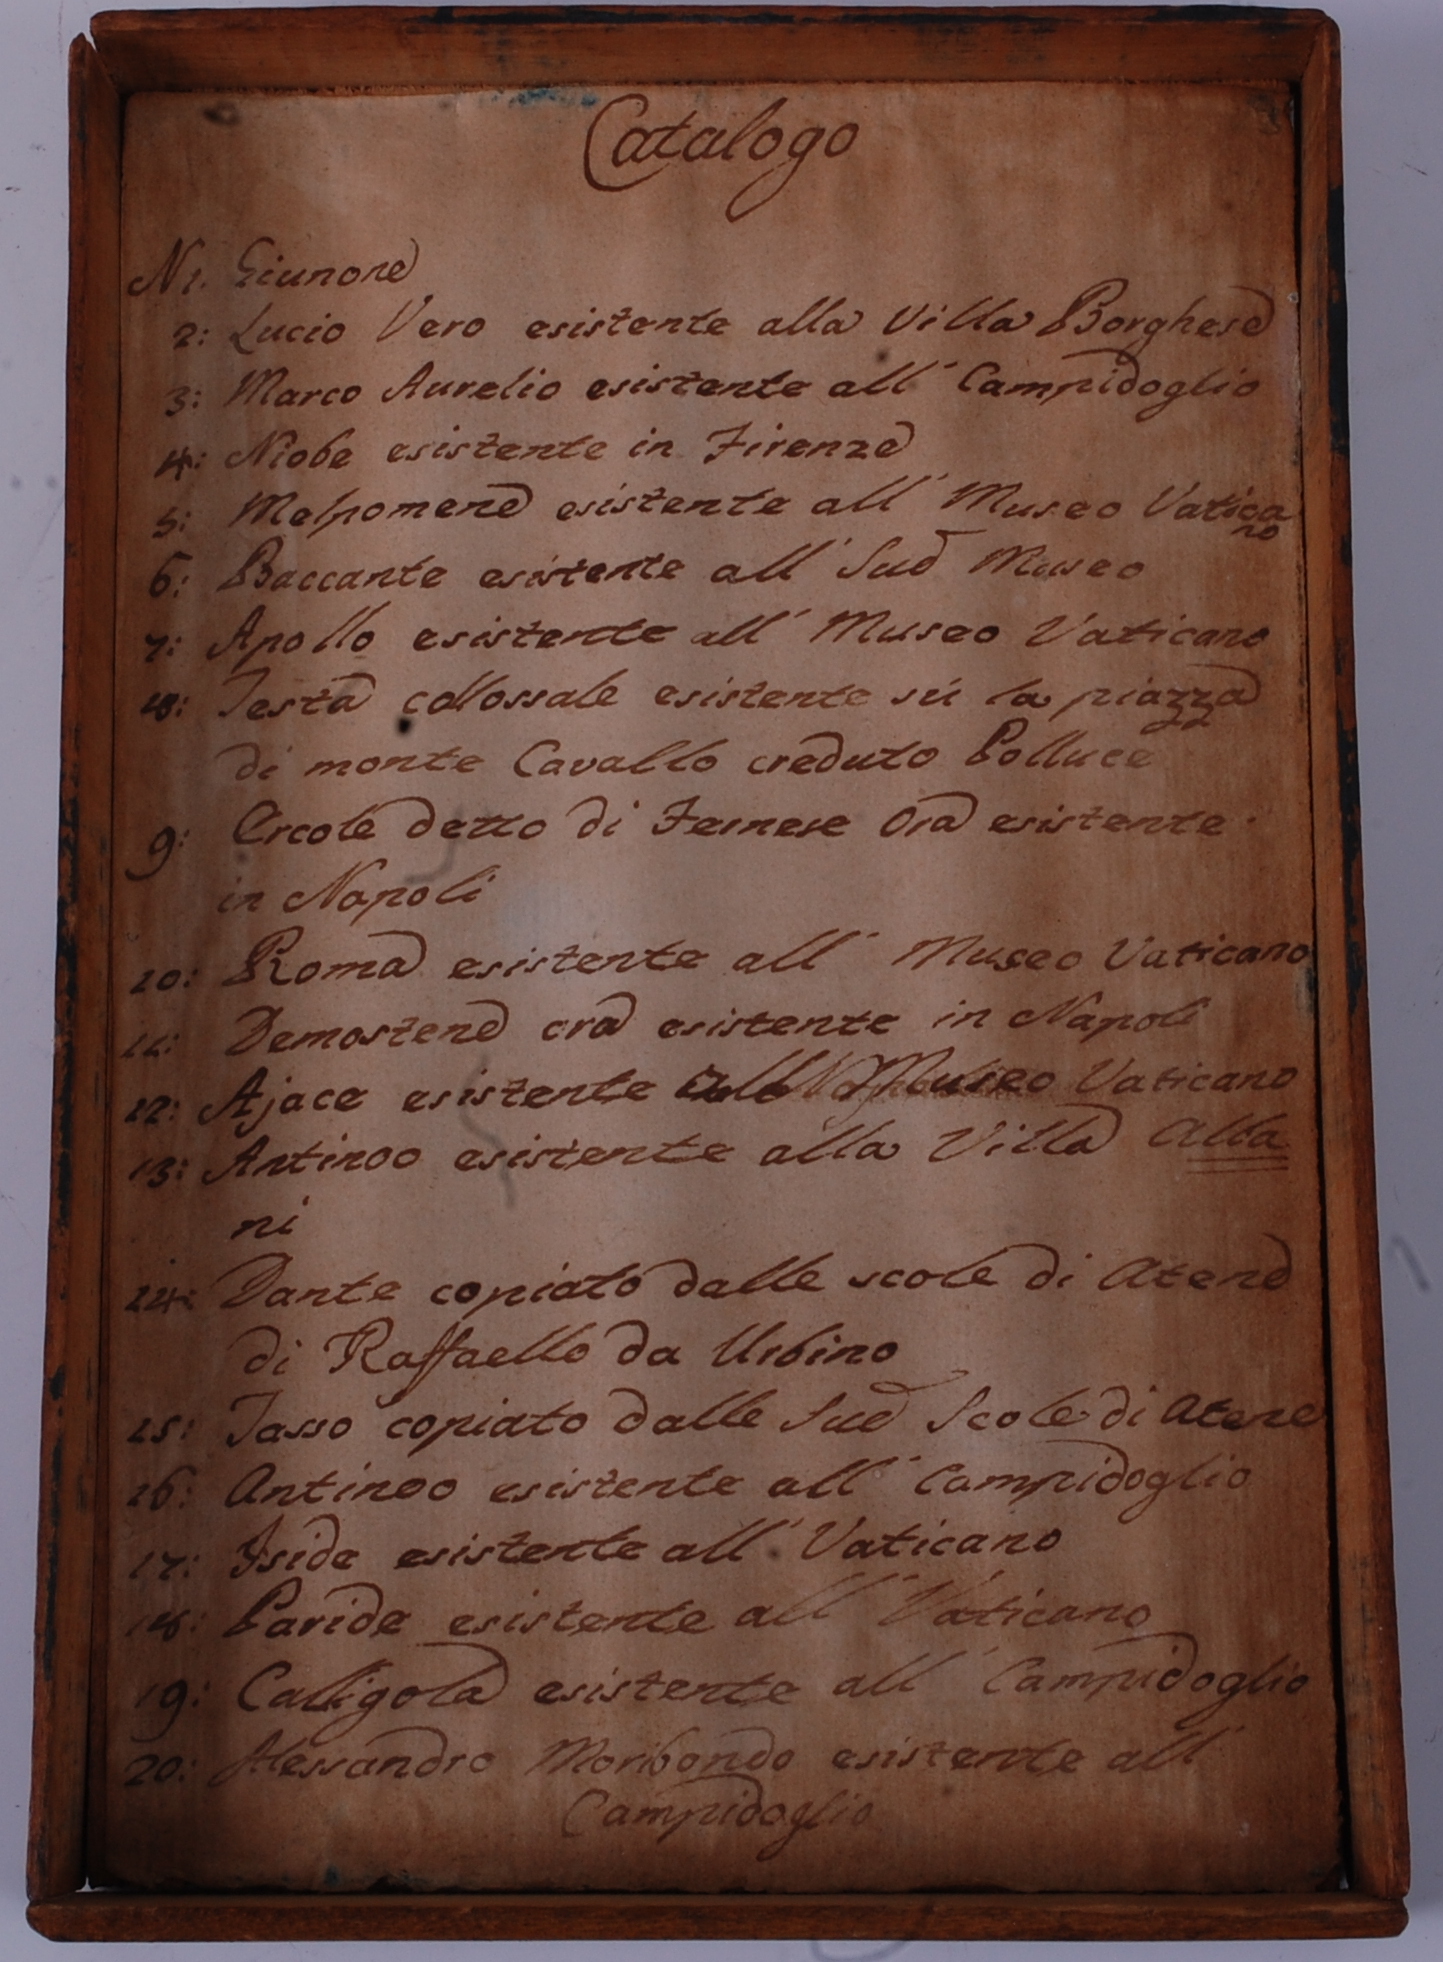 Catalogo
N1. Giunone
2: Lucio Vero esistente alla Villa Borghese
3: Marco Aurelio esistente all' Campidoglio
4: Niobe esistente in Firenze
5: Melpomene esistente all' Museo Vatica
no
6: Baccante esistente all' Sud Museo
7: Apollo esistente all' Museo Vaticano
8: Testa collossale esistente sú la piazza
di monte Cavallo creduto Polluce
9: Ercole detto di Fernese Ora esistente
in Napoli
10: Roma esistente all' Museo Vaticano
11: Demostene ora esistente in Napoli
12: Ajace esistente Museo Vaticano
13: Antinoo esistente alla Villa Alba
ni
14: Dante copiato dalle scole di Atene
di Raffaello da Urbino
15: Tasso copiato dalle Sud Scole di Atene
16: Antinoo esistente all' Campidoglio
17: Iside esistente all' Vaticano
18: Paride esistente all' Vaticano
19: Caligola esistente all' Campidoglio
20: Alessandro Moribondo esistente all'
Campidoglio